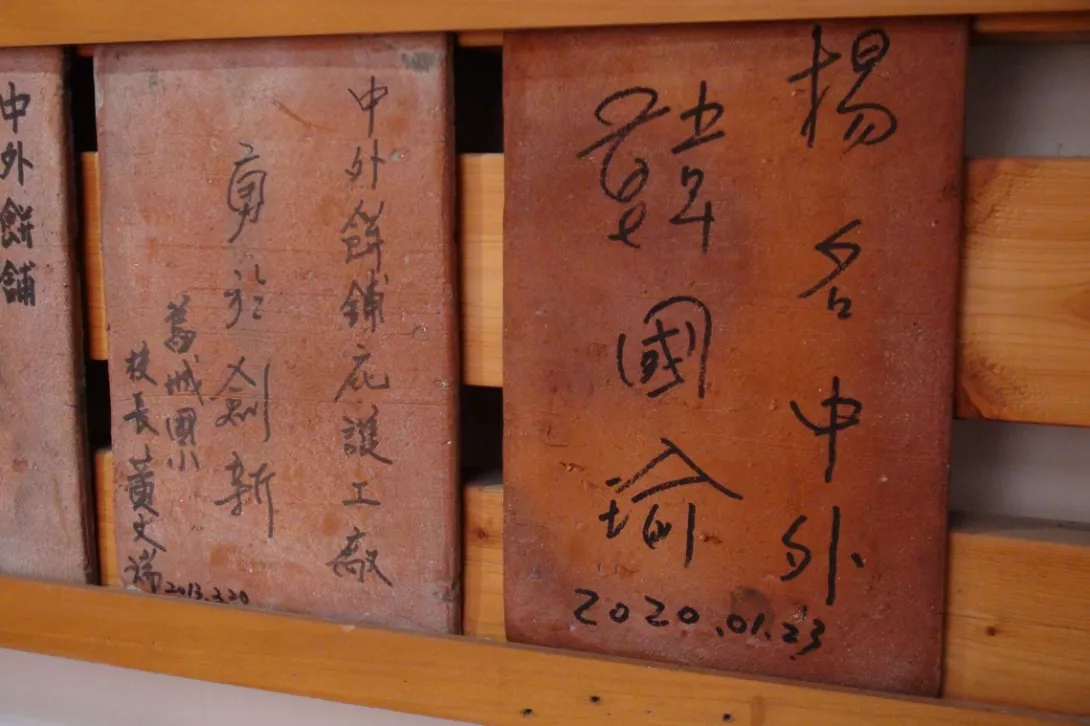 揚名中外
韓國瑜
2020.01.23
中外餅鋪庇護工廠
勇於創新
舊城國小
校長黃文
2013.3.20
中外餅舖